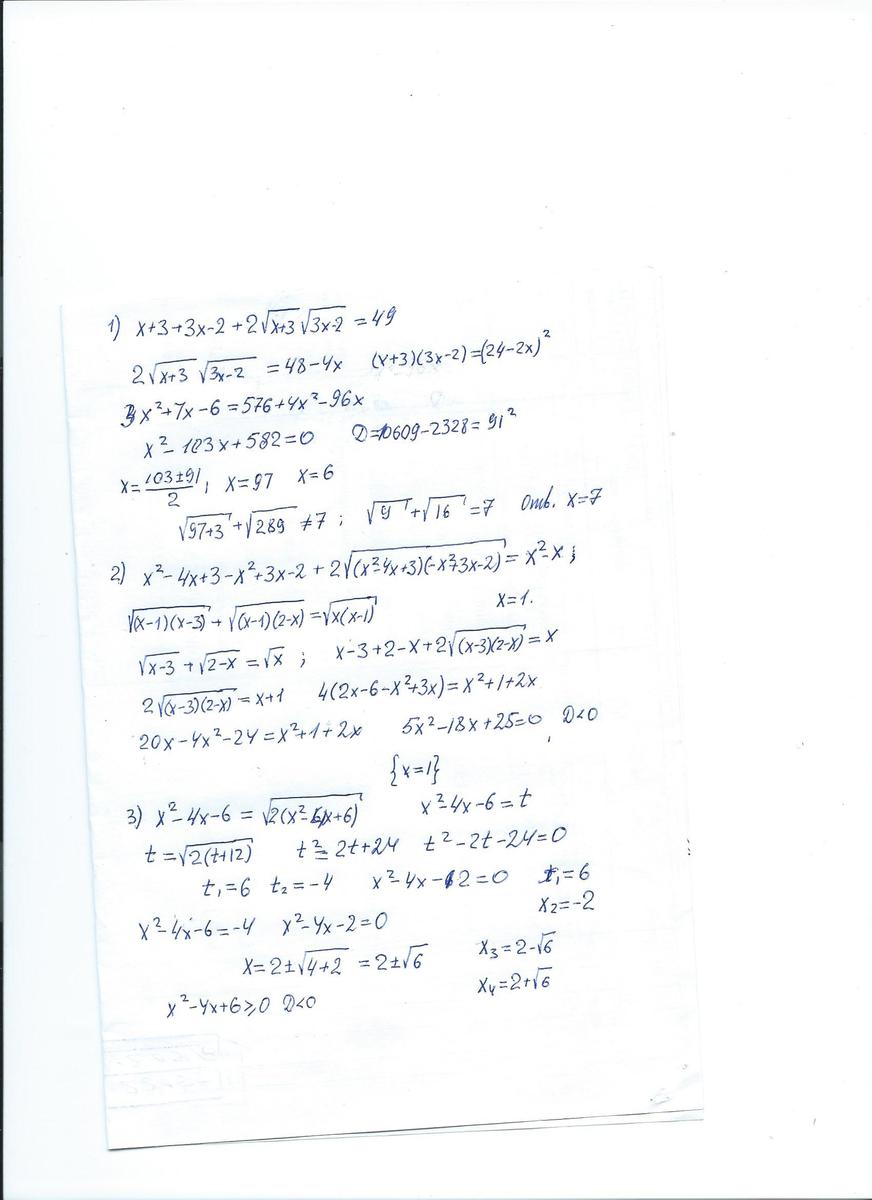 1) x+3+3x-2+2√(x+3) √(3x-2) = 49
2√(x+3) √(3x-2) = 48-4x (x+3)(3x-2)=(24-2x)²
3x²+7x-6=576+4x²-96x
x²-103x+582=0 D=10609-2328=91²
x=(103±91)/2; x=97 x=6
√(97+3)+√289 ≠7; √9+√16=7 Отв. x=7
2) x²-4x+3-x²+3x-2+2√((x²-4x+3)(-x²+3x-2))=x²-x;
√((x-1)(x-3))+√((x-1)(2-x))=√(x(x-1)) x=1.
√(x-3)+√(2-x)=√x; x-3+2-x+2√((x-3)(2-x))=x
2√((x-3)(2-x))=x+1 4(2x-6-x²+3x)=x²+1+2x
20x-4x²-24=x²+1+2x 5x²-18x+25=0, D<0
{x=1}
3) x²-4x-6=√(2(x²-4x+6)) x²-4x-6=t
t=√(2(t+12)) t²=2t+24 t²-2t-24=0
t₁=6 t₂=-4 x²-4x-12=0 x₁=6
x₂=-2
x²-4x-6=-4 x²-4x-2=0
x=2±√(4+2) =2±√6 x₃=2-√6
x₄=2+√6
x²-4x+6≥0 D<0